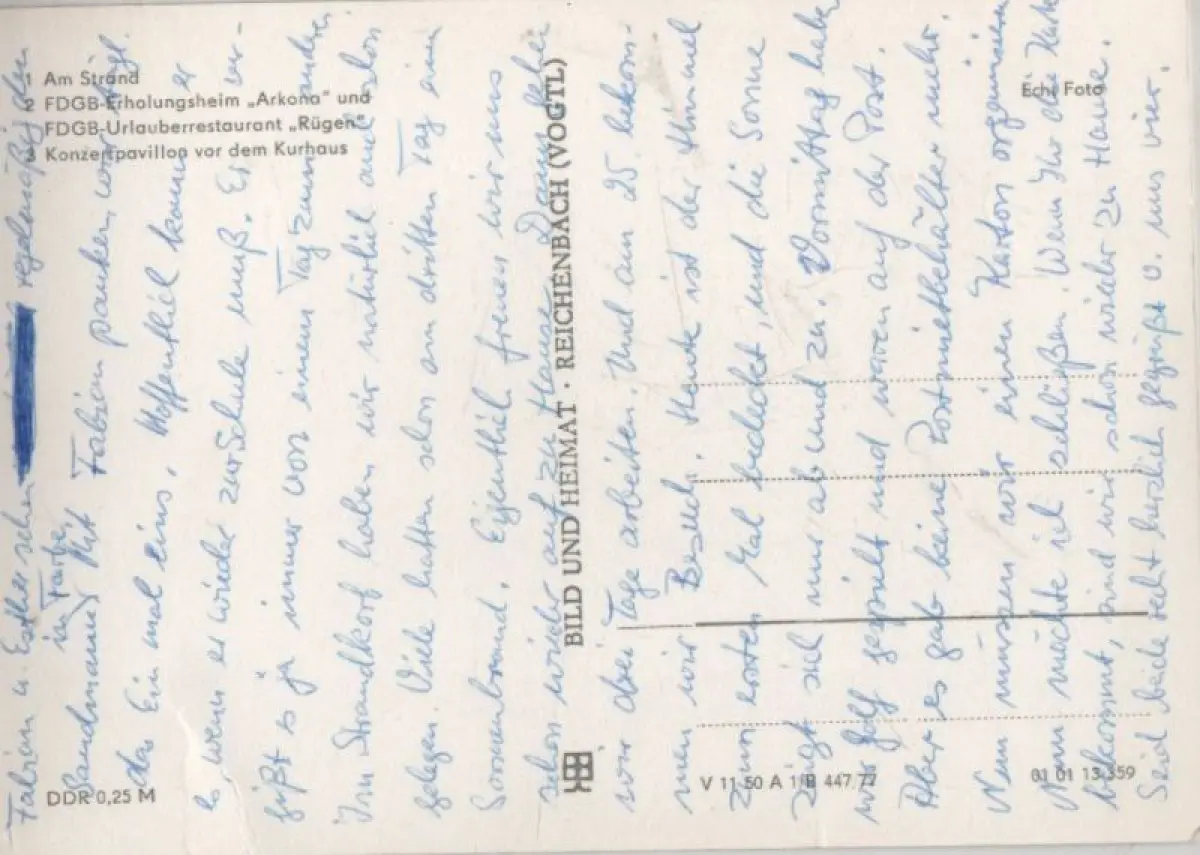 1 Am Strand
2 FDGB-Erholungsheim „Arkona“ und
FDGB-Urlauberrestaurant „Rügen“
3 Konzertpavillon vor dem Kurhaus
Echt Foto
BILD UND HEIMAT · REICHENBACH (VOGTL)
DDR 0,25 M
V 11 50 A 1/B 447.77
01 01 13 359
Fabian u. Esther sehen regelmäßig den
Sandmann in Farbe. Mit Fabian pauken wir
das Ein mal eins. Hoffentlich kann er
es wenn er wieder zur Schule muß. Er ver-
gißt s ja immer von einem Tag zum anderen.
Im Strandkorb haben wir natürlich auch schon
gelegen. Viele hatten schon am dritten Tag ein
Sonnenbrand. Eigentlich freuen wir uns
schon wieder auf zu Hause. Dann
wir drei Tage arbeiten. Und am 25. bekom-
men wir Besuch. Heute ist der Himmel
zum ersten Mal bedeckt, und die Sonne
zeigt sich nur ab und zu. Vormittag haben
wir Golf gespielt und waren auf der Post.
Aber es gab keine Postmietbehälter mehr.
Nun müssen wir einen Karton organisieren.
Nun möchte ich schließen. Wenn Ihr die Karte
bekommt, sind wir schon wieder zu Hause.
Seid beide recht herzlich gegrüßt v. uns vier.